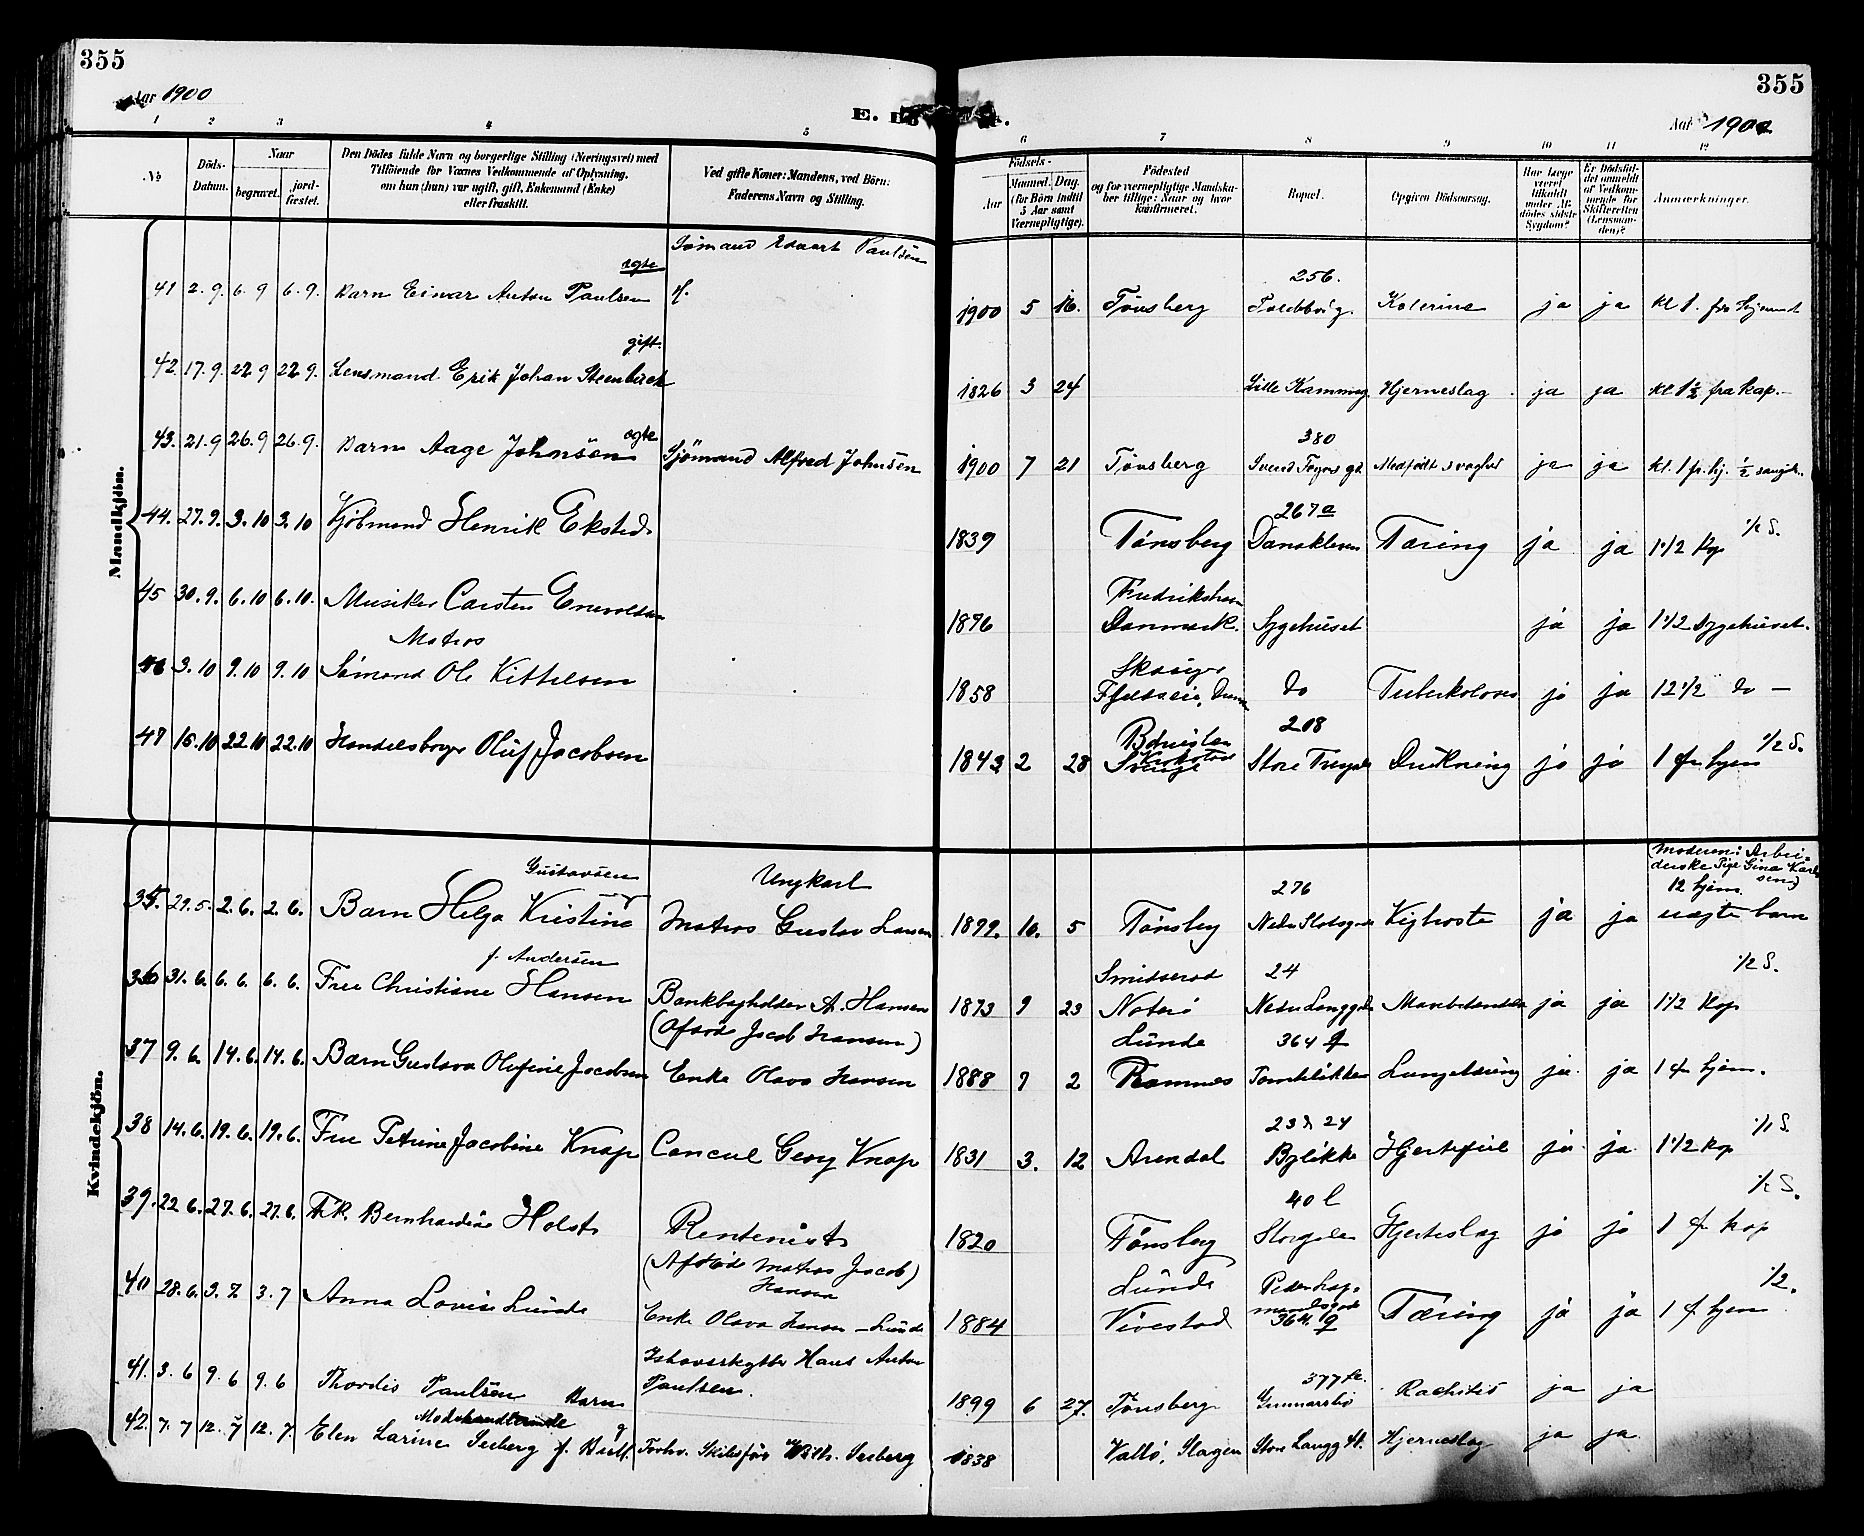 355
355
Aar 1900
E.
Aar 1900
1 2 3 4 5 6 7 8 9 10 11 12
No
Döds-Datum.
Naar
begravet.
jord-fæstet.
Den Dödes fulde Navn og borgerlige Stilling (Næringsvei) med
Tilföiende for Voxnes Vedkommende af Oplysning,
om han (hun) var ugift, gift, Enkemand (Enke)
eller fraskilt.
Ved gifte Koner: Mandens, ved Börn:
Faderens Navn og Stilling.
Födsels-
Aar
Maaned. Dag.
(for Börn indtil
5 Aar samt
Værnepligtige).
Födested
og for værnepligtige Mandska-
ber tillige: Naar og hvor
konfirmeret.
Bopæl.
Opgiven Dödsaarsag.
Har læge
været
tilkaldt
under Af-
dödes sidste
Sygdom?
Er Dödsfal-
det anmeldt
af Vedkom-
mende for
Skifteretten
(Lensman-
den)?
Anmærkninger.
Mandkjön.
Sømand Edvart Paulsen
ægte 256.
41 2.9. 6.9 6.9. Barn Einar Anton Paulsen 1900 5 16. Tønsberg Kolerine ja ja kl 1. fra hjemmet
gift.
42. 17.9. 22 9 22 9. Lensmand Erik Johan Steenbuch 1826 3 24 Lille Hjerneslag ja ja kl 1½ fra kap.
ægte 380
43. 21.9 26.9 26.9. Barn Aage Johnsen Sjømand Alfred Johnsen 1900 7 21 Tønsberg Svend Foyns gd. Medfødt svaghed ja ja kl. 1 fr. hj. ½ sang
267a 1/2 S.
44. 27.9. 3.10 3.10 Kjöbmand Henrik Eksted 1839 Tønsberg Tæring ja ja 1 1/2 Kap
Fredrikshavn
45 30.9. 6.10 6.10. Musiker Carsten Enevoldsen 1876 Danmark. Sygehuset ja ja 1 1/2 Sygehuset.
Matros
46 3.10 9.10 9.10 Sømand Ole Kittelsen 1858 do Tuberkulose ja ja 12 1/2 do —
208 1/2 S.
47 15.10 22.10 22.10 Handelsborger Oluf Jacobsen 1843 2 28 Sverige Store Drukning ja ja 1 fra hjem
Kvindekjön.
(Moderen: Arbei-
derske Pige Gina Karl
sen)
Gustavsen Ungkarl 276 12 hjem
35. 29.5. 2.6. 2.6. Barn Helga Kristine Matros Gustav Larsen 1899. 10. 5 Tønsberg Nedre Kighoste ja ja uægte barn
f. Andersen 24 1/2 S.
36 31.6. 6.6. 6.6. Frue Christiane Hansen Bankbogholder A. Hansen 1873 9 23 Nøterø Nedre Langgade ja ja 1 1/2 Kap
(Afdøde Jacob Hansen) Lunde 364 q
37 9.6. 14.6. 14.6. Barn Gustava Olefine Jacobsen Enke Olava Hansen 1888 9 2 Ramnes Lungetæring ja ja 1 fr hjem.
23 24 1/1 S.
38 14.6. 19.6. 19.6. Frue Petrine Jacobine Knap Concul Georg Knap 1831 3. 12 Arendal Hjertefeil ja ja 1 1/2 Kap
40 l 1/2 S.
39. 22.6. 27.6. 27.6. Frk. Bernhardine Holst Rentenist 1820 Tønsberg Storgaden Hjerteslag ja ja 1 f. Kap
(Afdöde Matros Jacob Hansen) Lunde 1/2.
40 28.6. 3.7. 3.7 Anna Lovise Lunde Enke Olava Hansen – Lunde 1884 Vivestad 364 q Tæring ja ja 1 f. hjem
Ishavsskytter Hans Anton
41. 3.6 9.6 9.6 Thordis Paulsen Barn Paulsen. 1899 6 27. Tønsberg 377 Gunnarsbø Rachitis ja ja
Modehandlerinde
42. 7.7 12.7 12.7. Elen Larine Seeberg f. Forhv. Skibsför Wilh. Seeberg 1838 Vallö, Slagen Store Langg 41. Hjerneslag ja ja